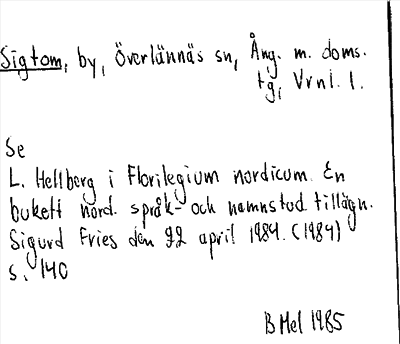 Sigtom, by, Överlännäs sn, Ång. m. doms.
tg, Vrnl. l.
Se
L. Hellberg i Florilegium nordicum. En
bukett nord. språk- och namnstud tillägn.
Sigurd Fries den 22 april 1984. (1984)
s. 140
B Mel 1985